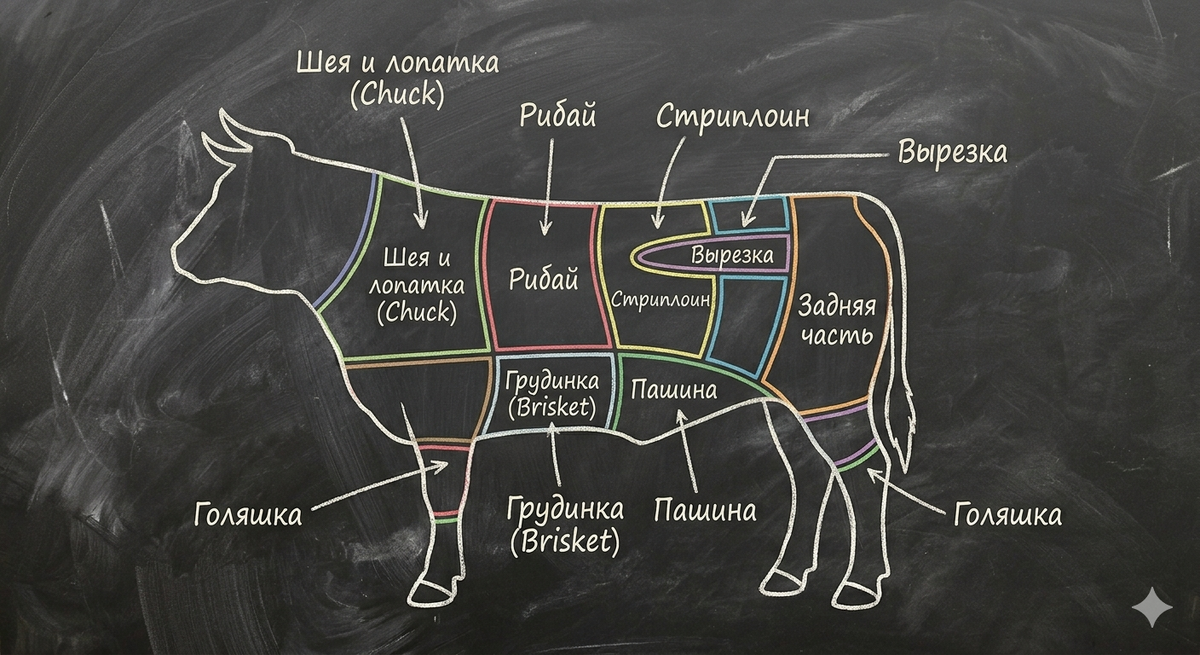 Шея и лопатка
(Chuck)
Рибай
Стриплоин
Вырезка
Шея и
лопатка
(Chuck)
Рибай
Вырезка
Стриплоин
Задняя
часть
Грудинка
(Brisket)
Пашина
Голяшка
Грудинка
(Brisket)
Пашина
Голяшка